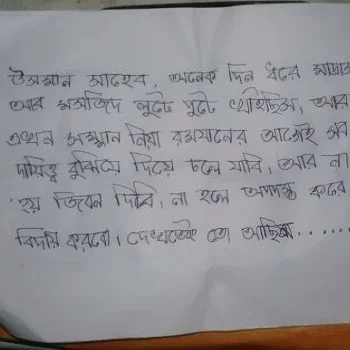 উসমান সাহেব, অনেক দিন ধরে মাদ্রাসা
আর মসজিদে লুটে পুটে খাইছিস, আর
এখন সম্মান নিয়া রমযানের আগেই সব
দায়িত্ব বুঝিয়ে দিয়ে চলে যাবি, আর না
হয় জিবন দিবি, না হলে অপদস্ত করে
বিদায় করবো। দেখতেই তো আছিস......